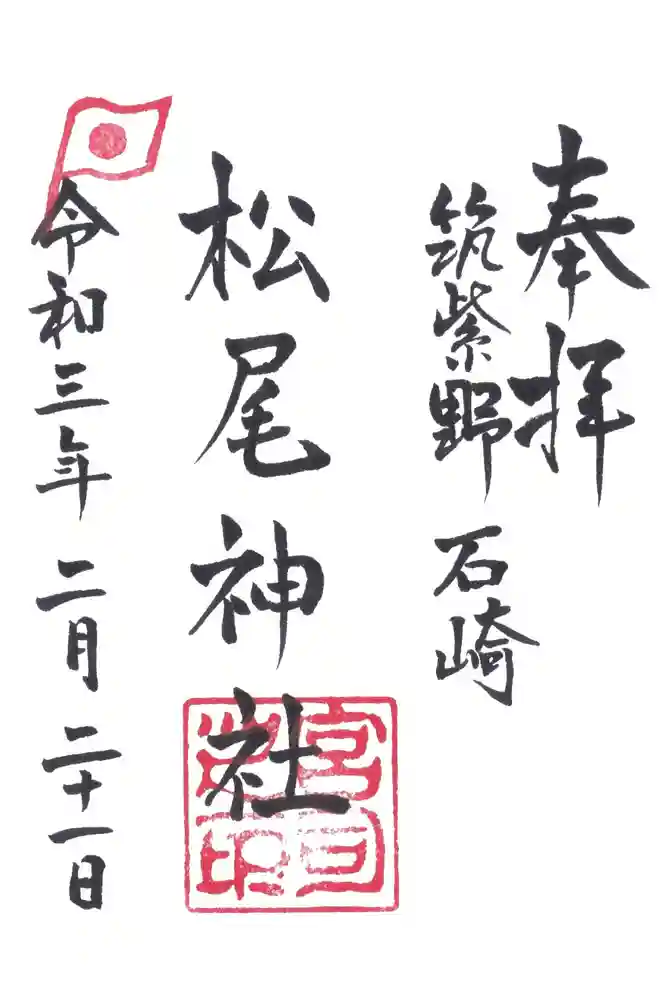 奉拝
筑紫野 石崎
松尾神社
宮司之印
令和三年 二月 二十一日